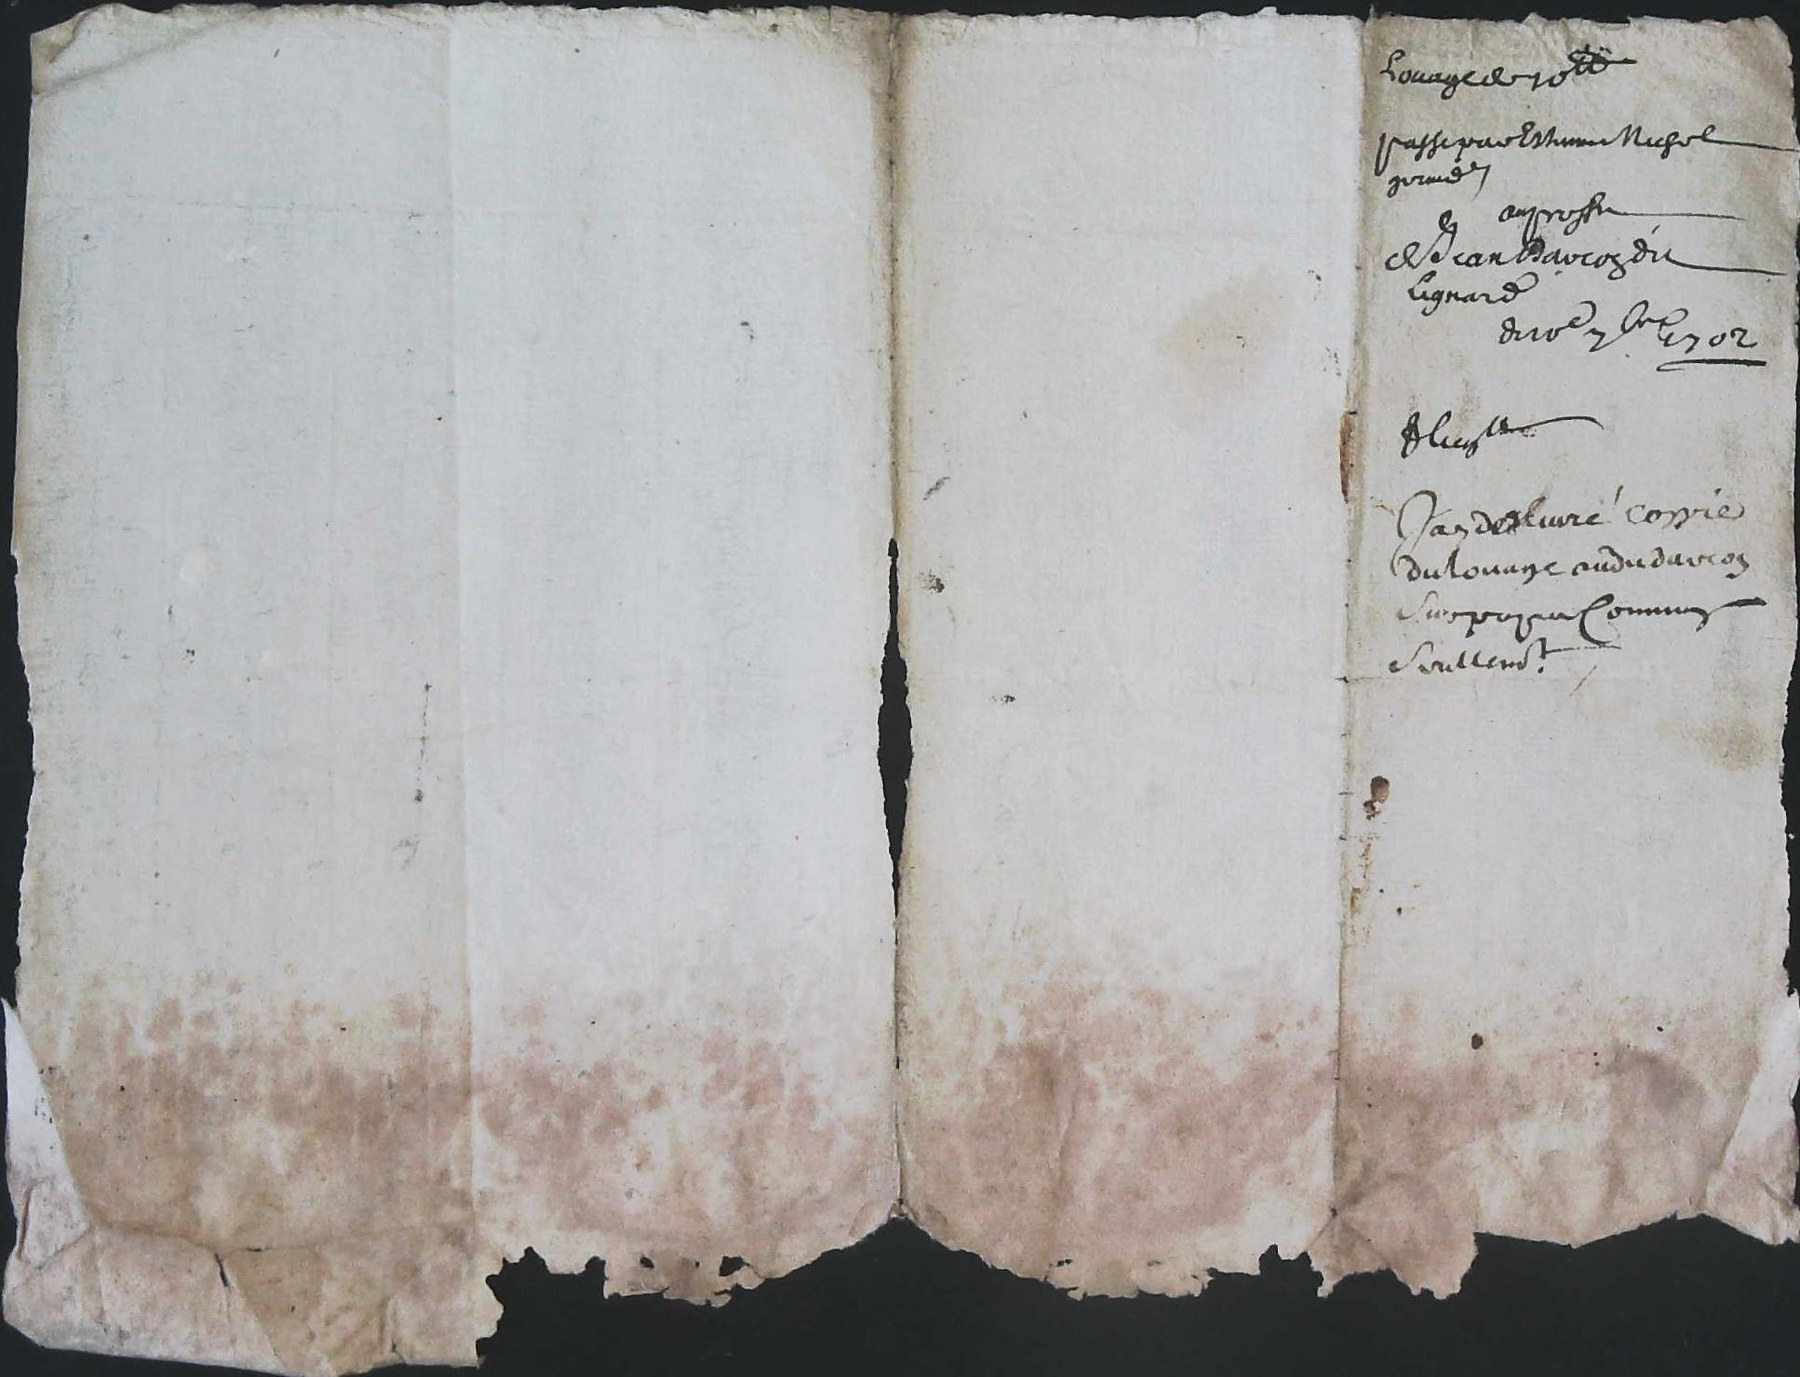 Louage de 10 ₶
passé par Estienne Michel
au proffit
de Jean Darcog du
Lignard
du 10e 7bre 1702
Jay deslivré coppie
du louage audit darcog
Sur papier Commung
Seullemt.